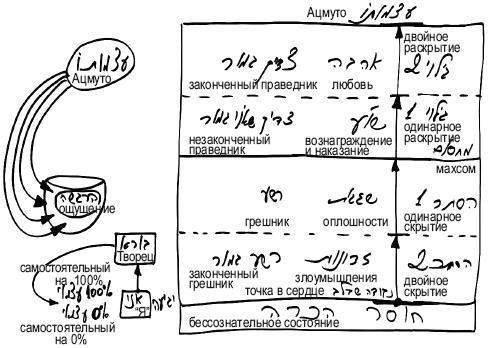 Ацмуто עצמותו
עצמותו
Ацмуто
двойное
раскрытие
צדיק גמור אהבה גילוי 2
законченный праведник любовь
צדיק שאינו גמור שו"ע גילוי 1
незаконченный
праведник
вознаграждение
и наказание
одинарное
раскрытие
מחסום
махсом
הרגשה
ощущение
רשע שגגות הסתר 1
грешник оплошности одинарное
скрытие
בורא
Творец
самостоятельный
на 100%
100% עצמאי
רשע גמור זדונות הסתר 2
законченный
грешник
злоумышления
двойное
скрытие
точка в сердце נקודה שבלב
אני
"Я"
יגיעה
0% עצמאי
самостоятельный
на 0%
חוסר הכרה
бессознательное состояние